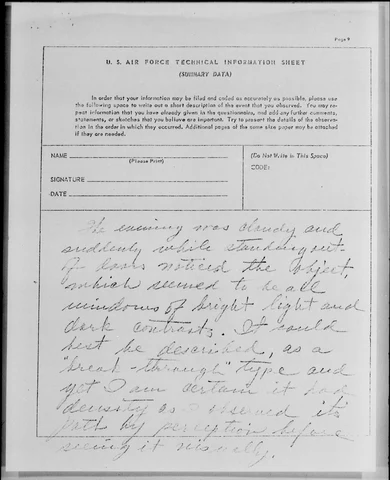 Page 9
U. S. AIR FORCE TECHNICAL INFORMATION SHEET
(SUMMARY DATA)
In order that your information may be filed and coded as accurately as possible, please use
the following space to write out a short description of the event that you observed. You may re-
peat information that you have already given in the questionnaire, and add any further comments,
statements, or sketches that you believe are important. Try to present the details of the observa-
tion in the order in which they occurred. Additional pages of the same size paper may be attached
if they are needed.
NAME
(Please Print)
SIGNATURE
DATE
(Do Not Write in This Space)
CODE:
The evening was cloudy and
suddenly while standing out
of doors noticed the object,
which seemed to be all
windows of bright light and
dark contrasts. It could
best be described, as a
"break-through" type and
yet I am certain it had
density as I observed its
path by perception before
seeing it visually.